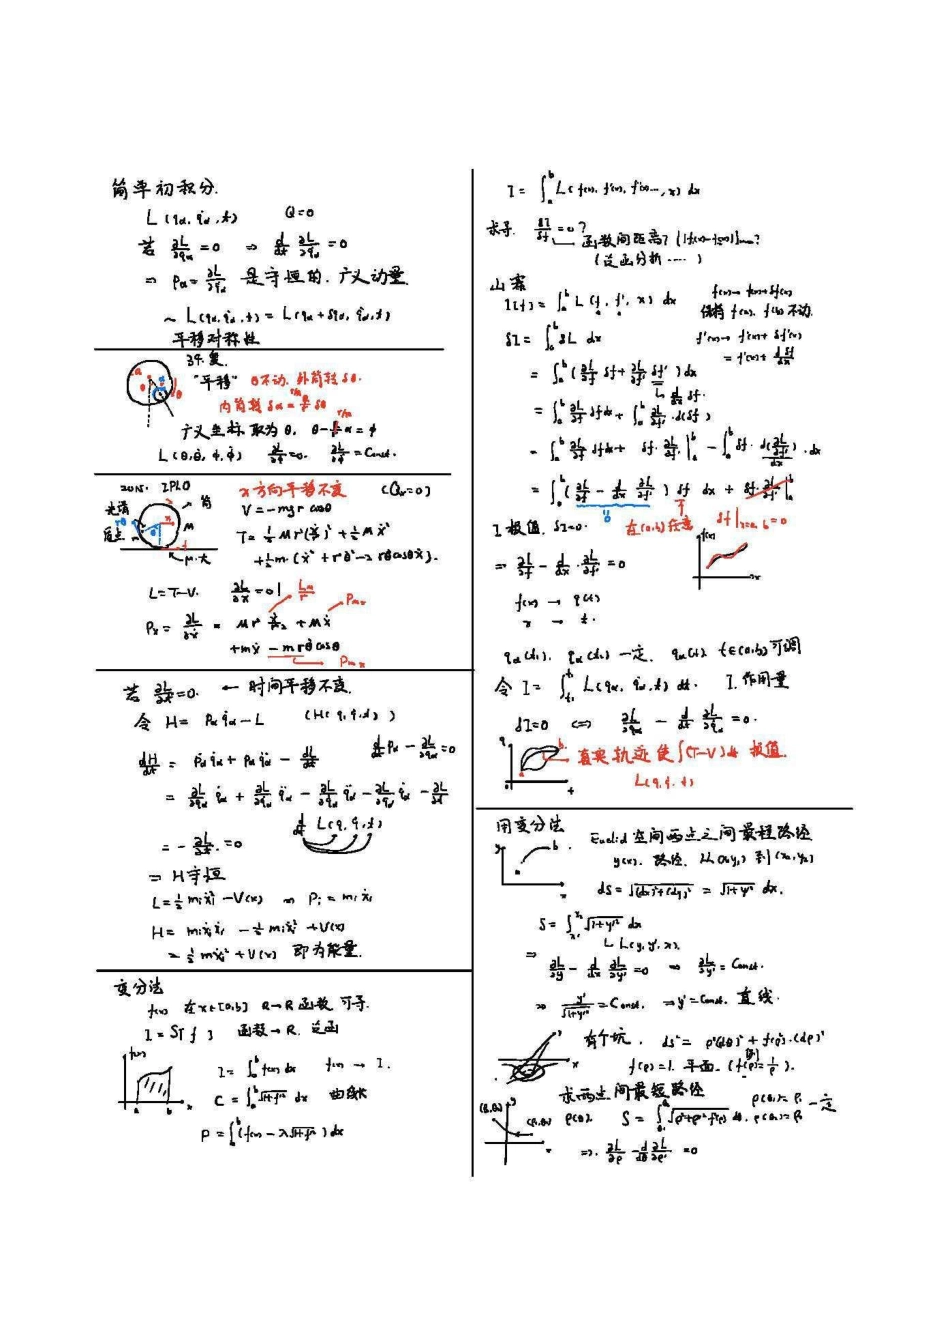 简单初积分.
L(qα, q̇α, t)  Q=0
若 ∂L/∂qα = 0 ⇒ d/dt ∂L/∂q̇α = 0
⇒ pα = ∂L/∂q̇α 是守恒的. 广义动量
~ L(qα, q̇α, t) = L(qα+δqα, q̇α, t)
平移对称性
34. 复.
"平移" θ不动. 外筒转 δθ.
广义坐标 取为 θ.
L(θ, θ̇, φ, φ̇) ∂L/∂φ = 0. ∂L/∂φ̇ = Const.
2015. IPhO
x方向平移不变 (Qx=0)
光滑 筒
V = -mgr cosθ
质点 M
T = ½Mr²(ẋ/r)² + ½Mẋ²
+½m(ẋ²+r²θ̇²-2rθ̇cosθẋ).
μ大
L=T-V. ∂L/∂x = 0
Px = ∂L/∂ẋ = Mr² ẋ/r² + Mẋ
+mẋ - mrθ̇cosθ
若 ∂L/∂t = 0. ← 时间平移不变.
令 H = pα q̇α - L (H(q, q̇, t))
dH/dt = ṗα q̇α + pα q̈α - dL/dt
d/dt pα - ∂L/∂qα = 0
= ∂L/∂qα q̇α + ∂L/∂q̇α q̈α - ∂L/∂q̇α q̈α - ∂L/∂qα q̇α - ∂L/∂t
= -∂L/∂t = 0
d/dt L(q, q̇, t)
⇒ H守恒
L = ½miẋi² - V(x) ⇒ Pi = miẋi
H = miẋiẋi - ½miẋi² + V(x)
= ½miẋi² + V(x) 即为能量.
变分法
f(x) 在 x∈[a,b] R→R 函数 可导.
I = S[f] 函数→R. 泛函
I = ∫ₐᵇ f(x) dx f(x) → I.
C = ∫ₐᵇ √(1+f'²) dx 曲线长
P = ∫ₐᵇ (f(x) - λ√(1+f'²)) dx
I = ∫ₐᵇ L(f(x), f'(x), f''(x)…, x) dx
求导. δI/δf = 0?
函数间距离? (|f(x)-f₀(x)|max?
(泛函分析……)
I(f) = ∫ₐᵇ L(f, f', x) dx
f(x) → f(x)+δf(x)
保持 f(a), f(b) 不动.
δI = ∫ₐᵇ δL dx
f'(x) → f'(x)+δf'(x)
= f'(x)+ d/dx δf
= ∫ₐᵇ (∂L/∂f δf + ∂L/∂f' δf') dx
d/dx δf.
= ∫ₐᵇ ∂L/∂f δf dx + ∫ₐᵇ ∂L/∂f' d(δf)
= ∫ₐᵇ ∂L/∂f δf dx + δf ∂L/∂f' |ₐᵇ - ∫ₐᵇ δf d(∂L/∂f')/dx dx
= ∫ₐᵇ (∂L/∂f - d/dx ∂L/∂f') δf dx + δf ∂L/∂f' |ₐᵇ
I 极值. δI=0. 0 在(a,b)任意 δf|x=a,b = 0
⇒ ∂L/∂f - d/dx ∂L/∂f' = 0
f(x)
f(x) → q(t)
x → t.
qα(t₁), qα(t₂) 一定. qα(t), t∈(a,b) 可调
令 I = ∫ L(qα, q̇α, t) dt. I. 作用量
δI=0 ⇔ ∂L/∂qα - d/dt ∂L/∂q̇α = 0.
真实轨迹使 ∫(T-V)dt 极值.
L(q, q̇, t)
用变分法 Euclid 空间两点之间最短路径
y(x). 路径. 从(x₁,y₁) 到 (x₂,y₂)
ds = √((dx)²+(dy)²) = √(1+y'²) dx.
S = ∫ √(1+y'²) dx
L(y, y', x).
⇒ ∂L/∂y - d/dx ∂L/∂y' = 0 ⇒ ∂L/∂y' = Const.
⇒ y'/√(1+y'²) = Const. ⇒ y' = Const. 直线.
有个坑. ds² = ρ²(dθ)² + f(ρ)²·(dρ)²
f(ρ)=1. 平面.
求两点间最短路径
ρ(θ).
⇒ ∂L/∂ρ - d/dθ ∂L/∂ρ' = 0